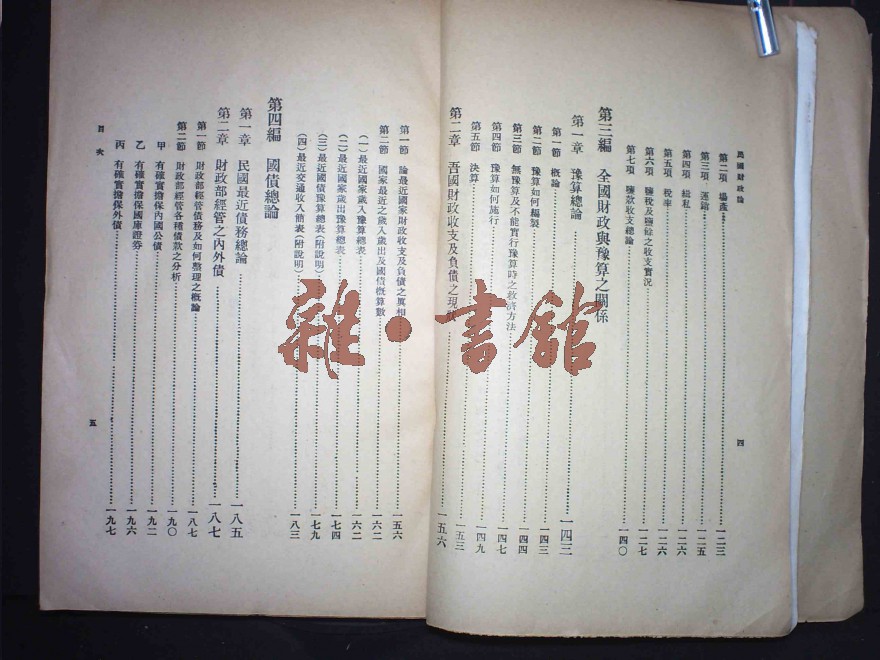 民國財政論
四
第二項 場產 一二三
第三項 運輸 一二五
第四項 緝私 一二六
第五項 稅率 一二六
第六項 鹽稅及鹽餘之收支實況 一二七
第七項 鹽款收支總論 一四〇
第三編 全國財政與豫算之關係
第一章 豫算總論 一四三
第一節 槪論 一四三
第二節 豫算如何編製 一四四
第三節 無豫算及不能實行豫算時之救濟方法 一四七
第四節 豫算如何施行 一四九
第五節 決算 一五三
第二章 吾國財政收支及負債之現狀 一五六
第一節 論最近國家財政收支及負債之眞相 一五六
第二節 國家最近之歲入歲出及國債槪算數 一六二
(一)最近國家歲入豫算總表 一六二
(二)最近國家歲出豫算總表 一七四
(三)最近國債豫算總表(附說明) 一七九
(四)最近交通收入簡表(附說明) 一八三
第四編 國債總論
第一章 民國最近債務總論 一八五
第二章 財政部經管之內外債 一八七
第一節 財政部經管債務及如何整理之槪論 一八七
第二節 財政部經管各種債款之分析 一九〇
甲 有確實擔保內國公債 一九二
乙 有確實擔保國庫證券 一九六
丙 有確實擔保外債 一九七
目次
五
雜·書館